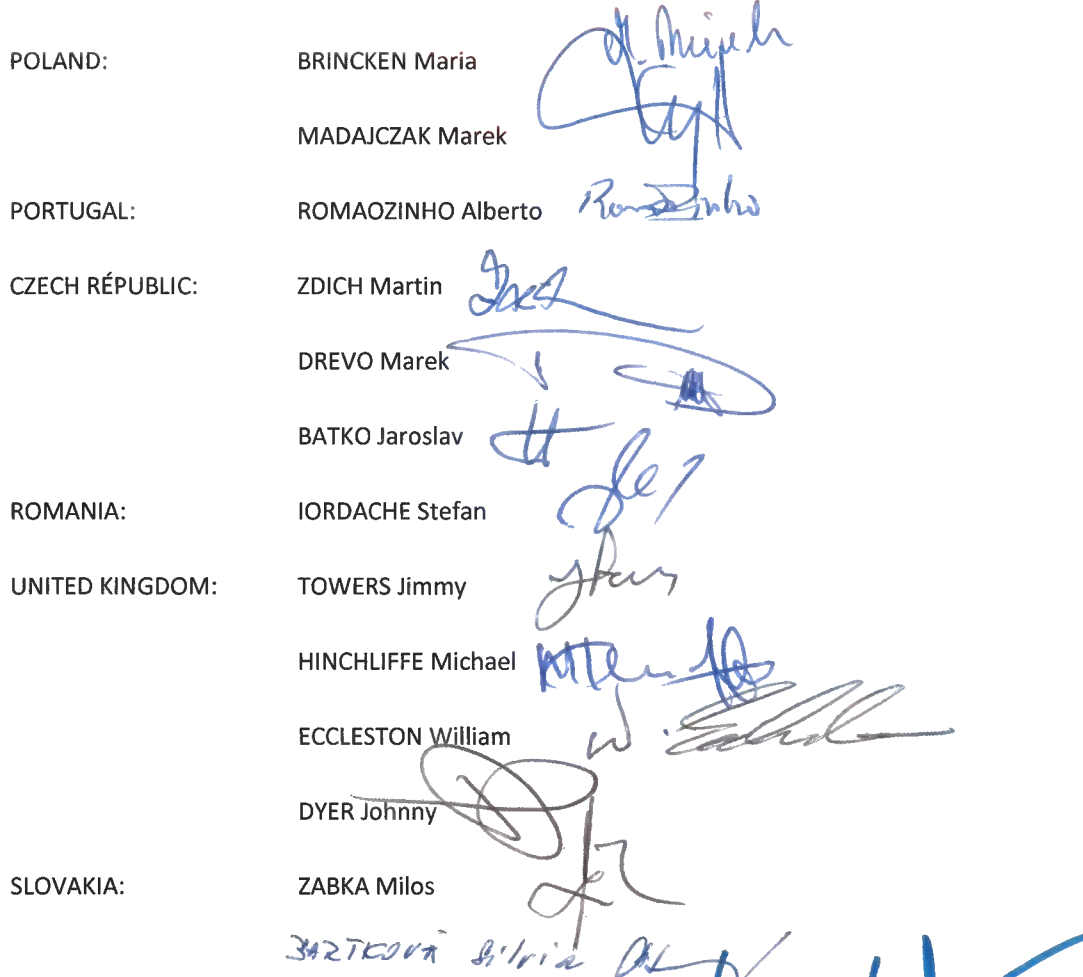 POLAND: BRINCKEN Maria
MADAJCZAK Marek
PORTUGAL: ROMAOZINHO Alberto Romaozinho
CZECH RÉPUBLIC: ZDICH Martin
DREVO Marek
BATKO Jaroslav
ROMANIA: IORDACHE Stefan
UNITED KINGDOM: TOWERS Jimmy
HINCHLIFFE Michael
ECCLESTON William
DYER Johnny
SLOVAKIA: ZABKA Milos
BARTKOVÁ Silvia